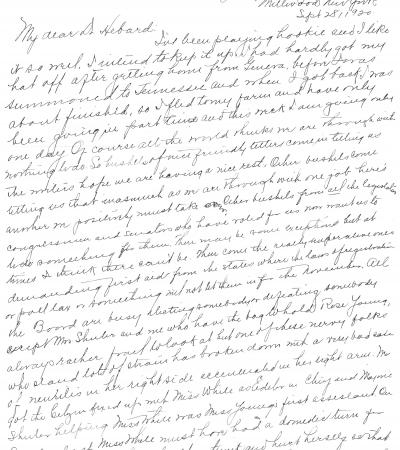 Millwood New York
Sept 28, 1920
My dear Dr Hebard.
I've been playing hookie and I like
it so well, I intend to keep it up. I had hardly got my
hat off after getting home from Geneva, before I was
summoned to Tennessee and when I got back I was
about finished, so I fled to my farm and have only
been giving part time and this week I am giving only
one day. Of course all the world thinks we are through with
nothing to do. So bushels of nice friendly letters come in telling us
the writers hope we are having a nice rest. Other bushels come
telling us that inasmuch as we are through with one job here's
another we positively must take on. Other bushels from all the legislators
congressmen and senators who have voted for us now want us to
do something for them. There may be some exceptions but at
times I think there can't be. Then come the really imperative ones
demanding first aid from the states where the laws of registration
or poll tax or something will not let them in for the November. All
the Board are busy electing somebody or defeating somebody
except Mrs Shuler and me who have the bag to hold. Rose Young,
always rather frail to look at but one of these nervy folks
who stand lots of strain has broken down with a very bad case
of neuritis in her right side accentuated in her right arm. We
got the Citizen fixed up with Miss White as Editor in Chief and Mayme
Shuler helping. Miss White was Miss Young's first assistant. On
Miss White must have had a domestic turn for
and hurt herself so that